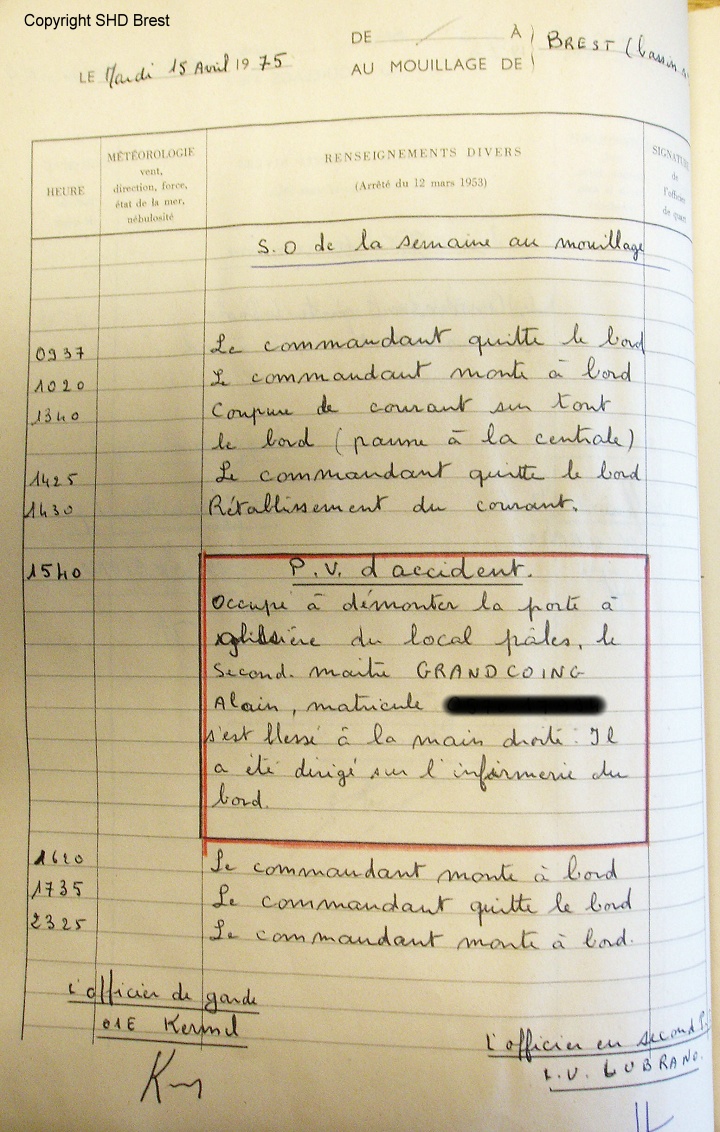 Copyright SHD Brest
DE À BREST (bassin
LE Mardi 15 Avril 1975
AU MOUILLAGE DE
HEURE
MÉTÉOROLOGIE
vent,
direction, force,
état de la mer,
nébulosité
RENSEIGNEMENTS DIVERS
(Arrêté du 12 mars 1953)
SIGNATURE
de
l'officier
de quart
S.O de la semaine au mouillage
0937 Le commandant quitte le bord
1020 Le commandant monte à bord
1340 Coupure de courant sur tout
le bord (panne à la centrale)
1425 Le commandant quitte le bord
1430 Rétablissement du courant.
1540 P.V. d'accident.
Occupé à démonter la porte à
glissière du local pâles, le
Second-maitre GRANDCOING
Alain, matricule
s'est blessé à la main droite. Il
a été dirigé sur l'infirmerie du
bord.
1620 Le commandant monte à bord
1735 Le commandant quitte le bord
2325 Le commandant monte à bord.
L'officier de garde
L'officier en second
L.V. LUBRANO.